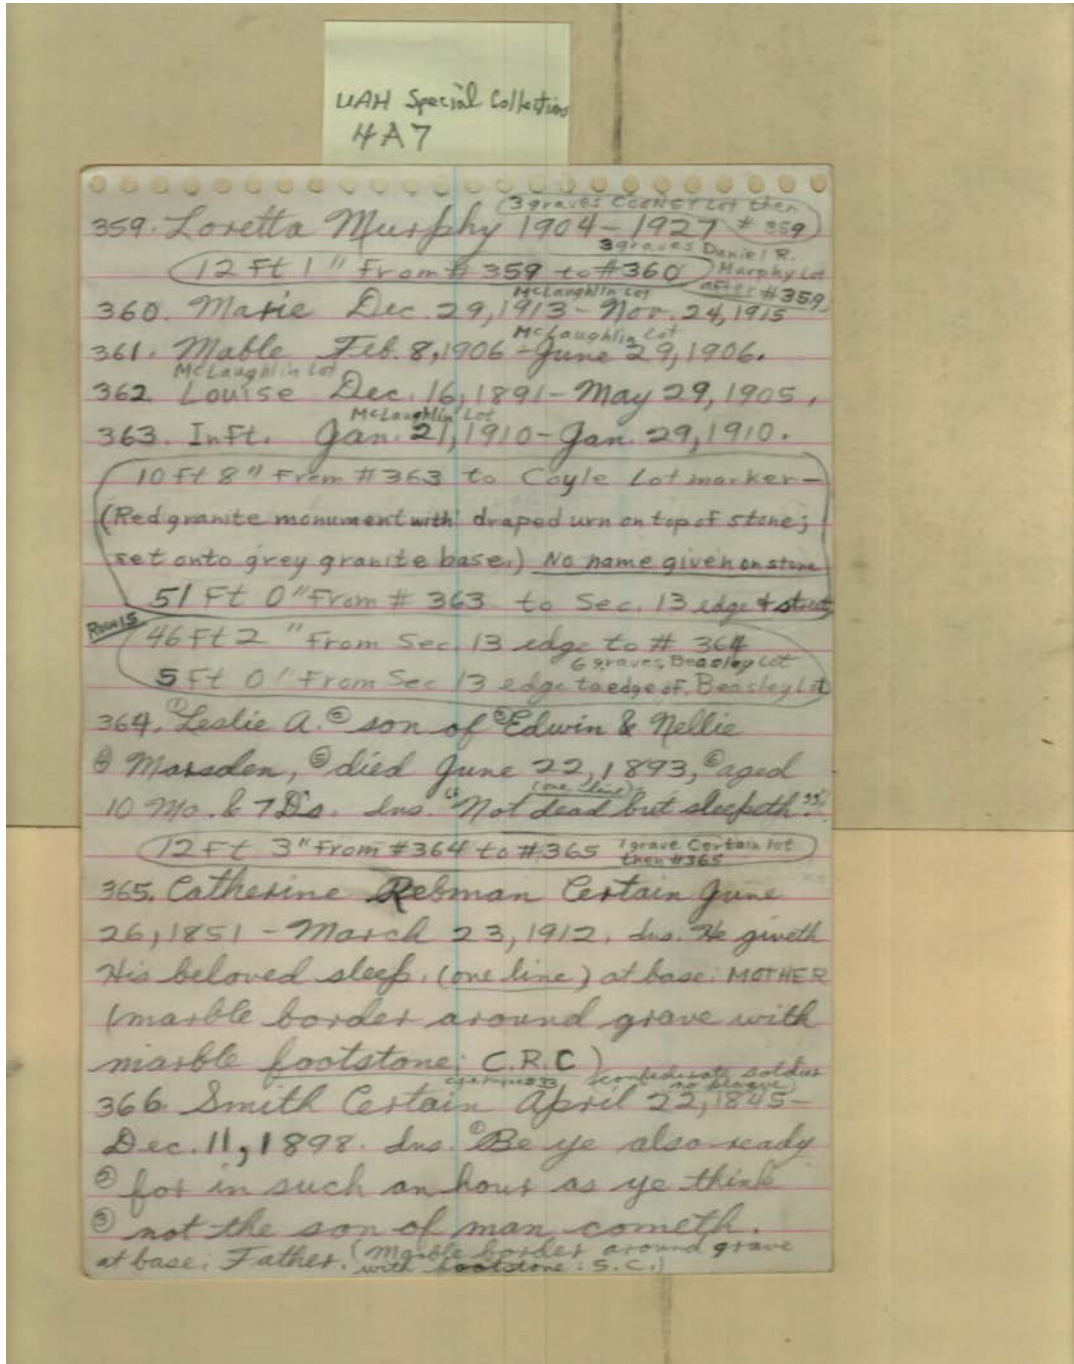 UAH Special Collections
4A7
3 graves Lot then
359. Loretta Murphy 1904-1927 # 359
3 graves Daniel R.
12 Ft 1" From # 359 to #360 Murphy Lot
after #359
McLaughlin Lot
360. Marie Dec. 29, 1913 - Nov. 24, 1915
McLaughlin Lot
361. Mable Feb. 8, 1906 - June 29, 1906.
McLaughlin Lot
362 Louise Dec. 16, 1891 - May 29, 1905.
McLaughlin Lot
363. Inft. Jan. 21, 1910 - Jan. 29, 1910.
10 Ft 8" From #363 to Coyle Lot marker-
(Red granite monument with draped urn on top of stone;
set onto grey granite base.) No name given on stone
51 Ft 0" From # 363 to Sec. 13 edge & street
Row 15
46 Ft 2" From Sec. 13 edge to # 364
6 graves, Beasley Lot
5 Ft 0" From Sec 13 edge to edge of Beasley Lot
364. ① Leslie A. ② son of ③ Edwin & Nellie
④ Marsden, ⑤ died June 22, 1893, ⑥ aged
(one line)
10 Mo. & 7 D's. Ins. "Not dead but sleepeth."
12 Ft 3" From #364 to #365 1 grave Certain lot
then #365
365. Catherine Rebman Certain June
26, 1851 - March 23, 1912. Ins. He giveth
His beloved sleep. (one line) at base: MOTHER
(marble border around grave with
marble footstone: C.R.C)
(confederate soldier
no plaque)
366 Smith Certain April 22, 1845-
Dec. 11, 1898. Ins. ① Be ye also ready
② for in such an hour as ye think
③ not the son of man cometh.
at base: Father. (Marble border around grave
with footstone: S.C.)